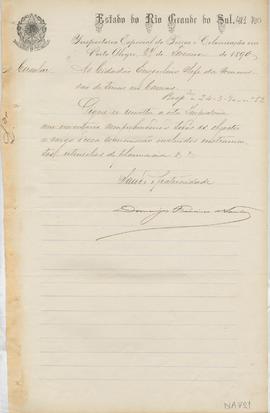 Estado do Rio Grande do Sul,
Inspectoria Especial de Terras e Colonisação em
Porto Alegre, de de 1890
Circular Ao Cidadão Engenheiro Chefe da Commis-
são de Terras em Caxias
24-3-90
Digne-se remetter a esta Inspectoria
um inventario comprehensivo a todos os objectos
a cargo d'essa commissão incluidos instrumen-
tos, utensilios de
Saude e fraternidade
Domingos Francisco